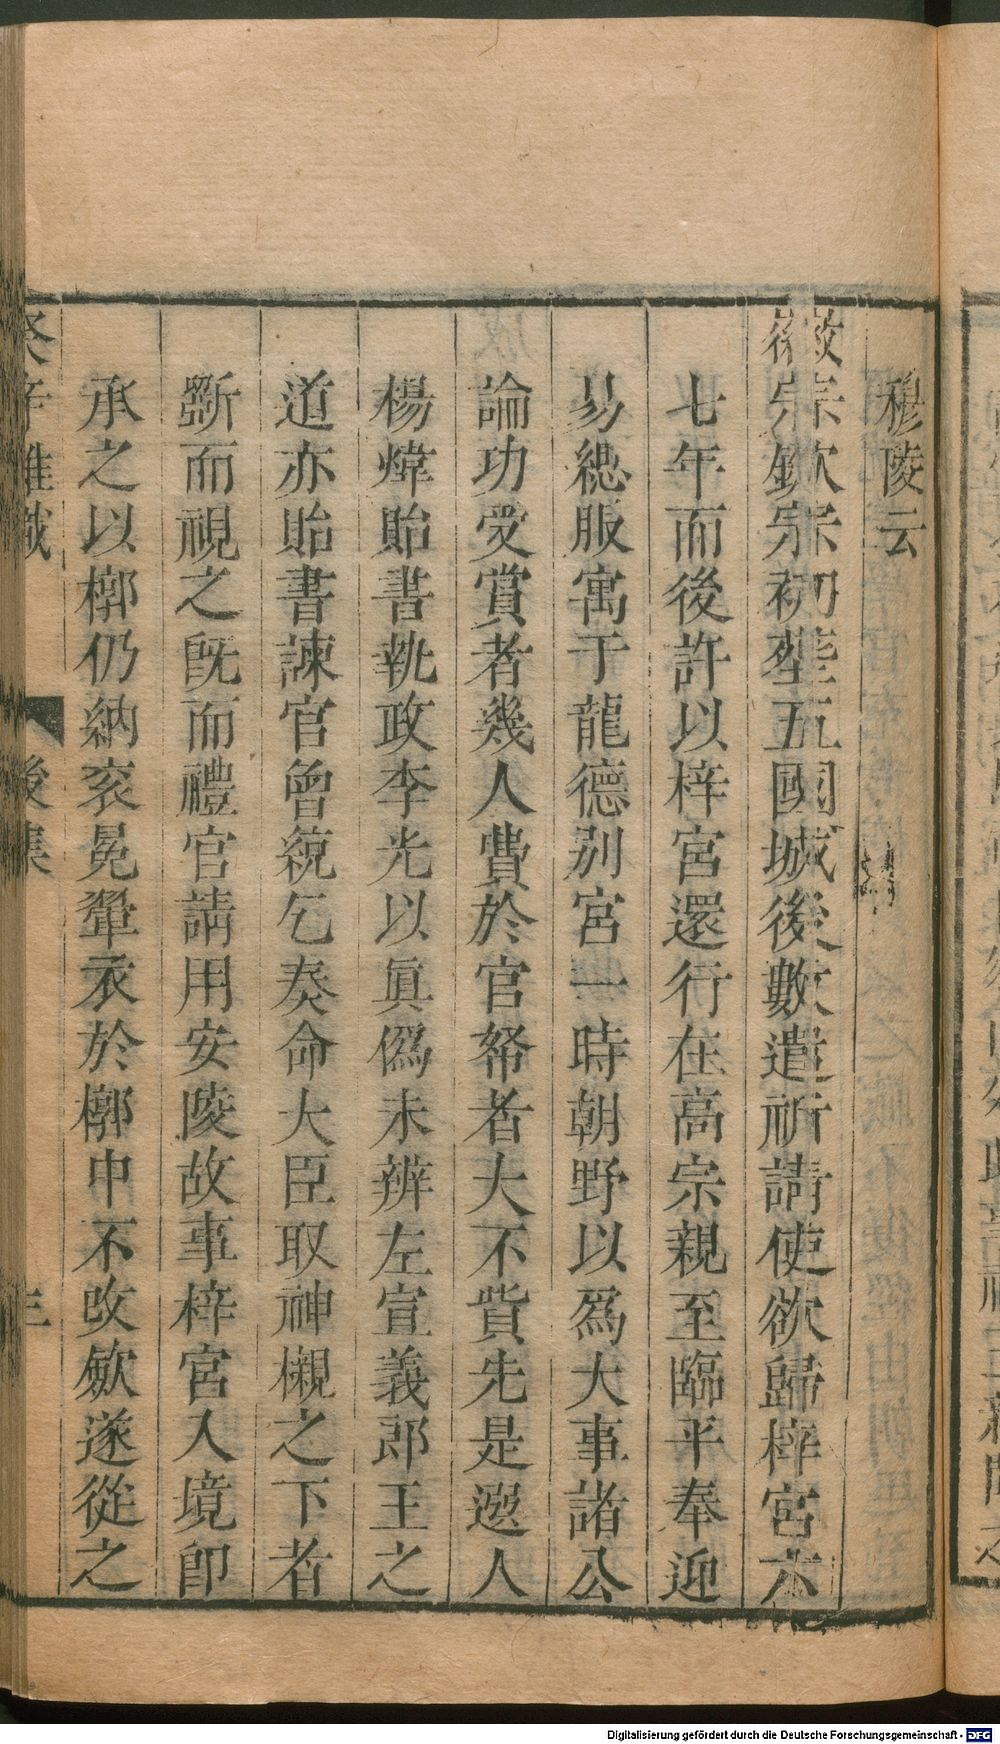 穆陵云
徽宗欽宗初塟五國城後數遣祈請使欲歸梓宮六
七年而後許以梓宮還行在高宗親至臨平奉迎
易緦服寓于龍德別宮一時朝野以爲大事諸公
論功受賞者幾人費於官帑者大不貲先是選人
楊煒貽書執政李光以眞僞未辨左宣義郎王之
道亦貽書諫官曾統乞奏命大臣取神櫬之下者
斲而視之旣而禮官請用安陵故事梓宮入境卽
承之以槨仍納衮冕翬衣於槨中不改斂遂從之
癸辛雜識 後集 三
Digitalisierung gefördert durch die Deutsche Forschungsgemeinschaft - DFG